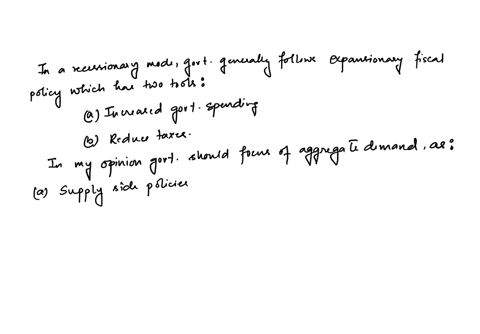 In a recessionary mode, govt. generally follow expansionary fiscal
policy which has two tools:
(a) Increased govt. spending
(b) Reduce taxes.
In my opinion govt. should focus of aggregate demand, as:
(a) Supply side policies